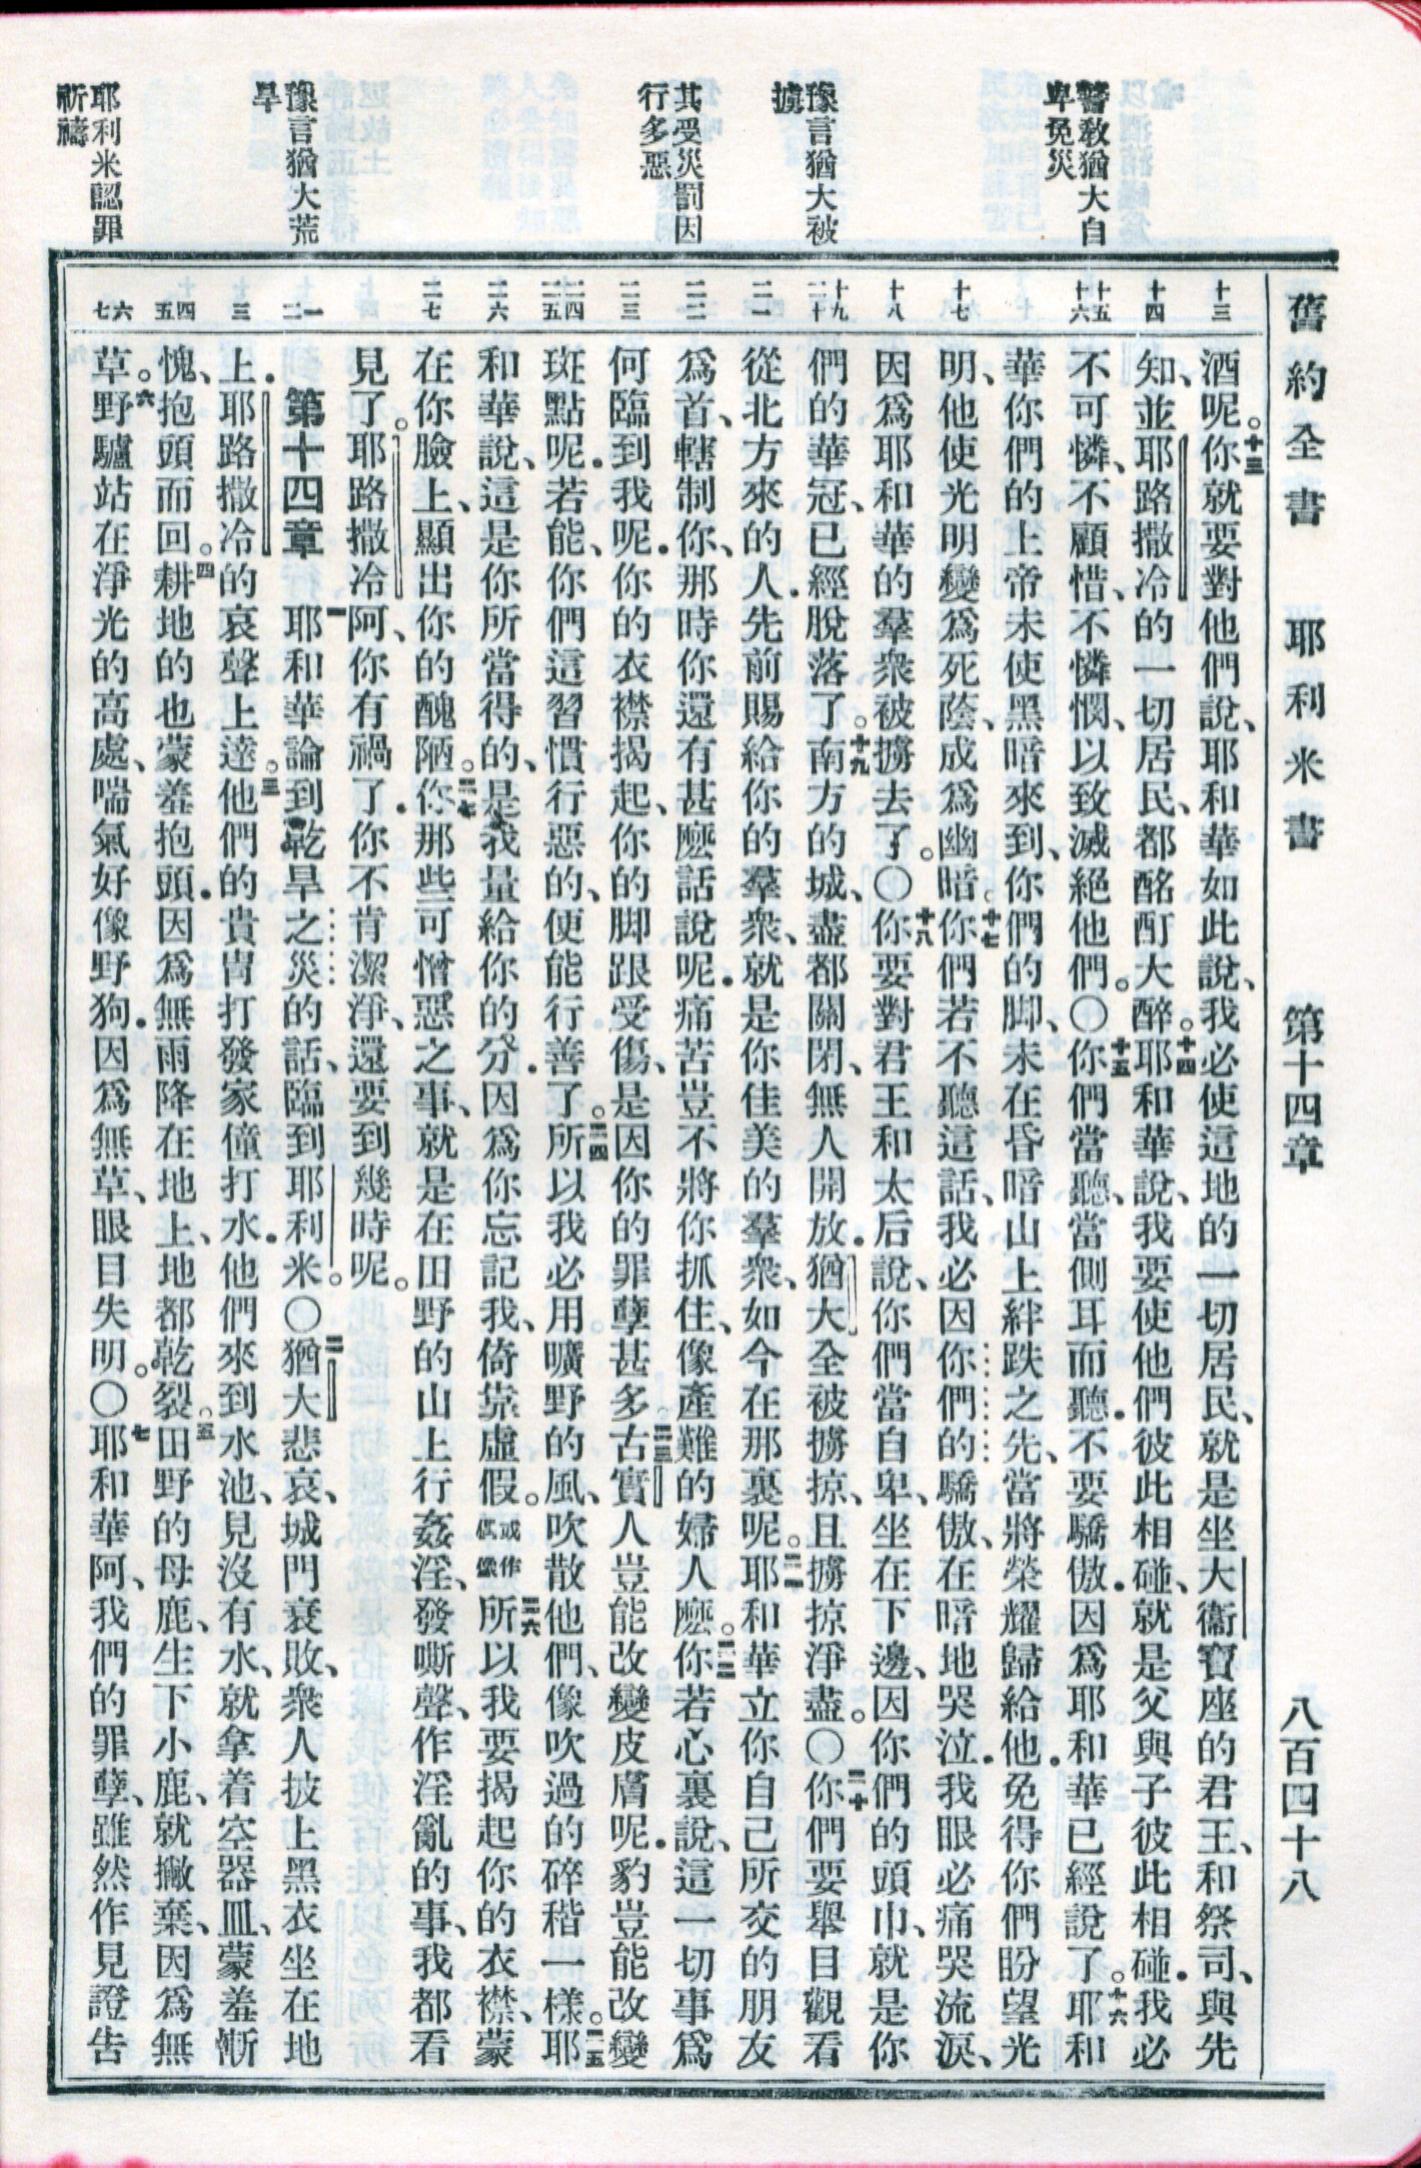 舊約全書 耶利米書 第十四章 八百四十八
警敎猶大自
卑免災
豫言猶大被
擄
其受災罰因
行多惡
豫言猶大荒
旱
耶利米認罪
祈禱
十三
酒呢。十三你就要對他們說、耶和華如此說、我必使這地的一切居民、就是坐大衞寶座的君王、和祭司、與先
十四
知、並耶路撒冷的一切居民、都酩酊大醉。十四耶和華說、我要使他們彼此相碰、就是父與子彼此相碰．我必
十五 十六
不可憐、不顧惜、不憐憫、以致滅絕他們。〇十五你們當聽、當側耳而聽．不要驕傲．因爲耶和華已經說了。十六耶和
華你們的上帝未使黑暗來到、你們的脚、未在昏暗山上絆跌之先、當將榮耀歸給他．免得你們盼望光
十七
明、他使光明變爲死蔭、成爲幽暗。十七你們若不聽這話、我必因你們的驕傲、在暗地哭泣．我眼必痛哭流淚、
十八
因爲耶和華的羣衆被擄去了。〇十八你要對君王和太后說、你們當自卑、坐在下邊、因你們的頭巾、就是你
十九 二十
們的華冠、已經脫落了。十九南方的城、盡都關閉、無人開放．猶大全被擄掠、且擄掠淨盡。〇二十你們要舉目觀看
二一
從北方來的人．先前賜給你的羣衆、就是你佳美的羣衆、如今在那裏呢。二一耶和華立你自己所交的朋友
二二
爲首、轄制你、那時你還有甚麼話說呢．痛苦豈不將你抓住、像產難的婦人麼。二二你若心裏說、這一切事爲
二三
何臨到我呢．你的衣襟揭起、你的脚跟受傷、是因你的罪孽甚多。二三古實人豈能改變皮膚呢．豹豈能改變
二四 二五
斑點呢．若能、你們這習慣行惡的、便能行善了。二四所以我必用曠野的風、吹散他們、像吹過的碎稭一樣。二五耶
二六
和華說、這是你所當得的、是我量給你的分．因爲你忘記我、倚靠虛假。或作偶像二六所以我要揭起你的衣襟、蒙
二七
在你臉上、顯出你的醜陋。二七你那些可憎惡之事、就是在田野的山上行姦淫、發嘶聲、作淫亂的事、我都看
見了。耶路撒冷阿、你有禍了．你不肯潔淨、還要到幾時呢。
一 二
第十四章 一耶和華論到乾旱之災的話、臨到耶利米。〇二猶大悲哀、城門衰敗、衆人披上黑衣坐在地
三
上．耶路撒冷的哀聲上達。三他們的貴冑打發家僮打水．他們來到水池、見沒有水、就拿着空器皿、蒙羞慚
四 五
愧、抱頭而回。四耕地的也蒙羞抱頭．因爲無雨降在地上、地都乾裂。五田野的母鹿、生下小鹿、就撇棄、因爲無
六 七
草。六野驢站在淨光的高處、喘氣好像野狗．因爲無草、眼目失明。〇七耶和華阿、我們的罪孽、雖然作見證告